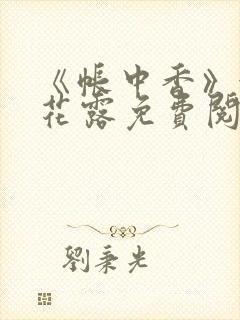 《帐中香》
花露免费阅
劉秉光